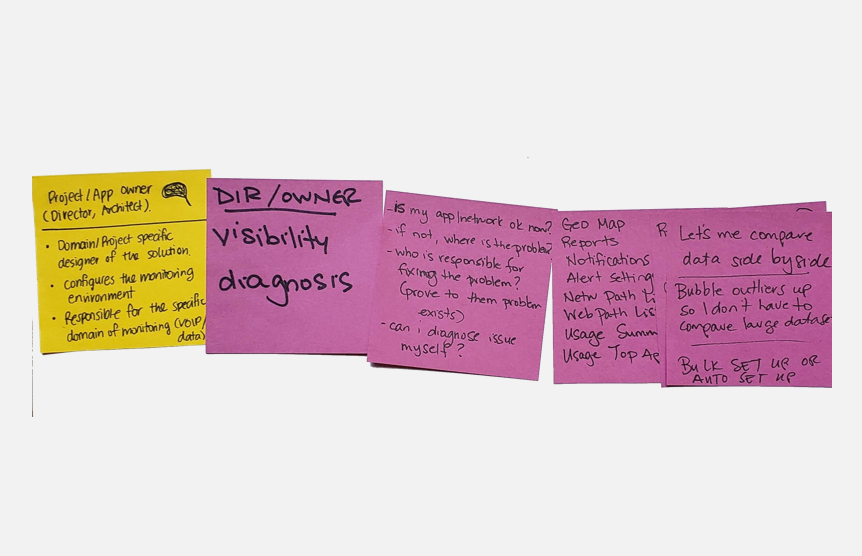 Project/App Owner
(Director, Architect).
• Domain/Project specific
designer of the solution.
• Configures the monitoring
environment
• Responsible for the specific
domain of monitoring (VOIP/
data)
DIR/OWNER
visibility
diagnosis
- is my app/network ok now?
- if not, where is the problem
- who is responsible for
fixing the problem?
(prove to them problem
exists)
- can i diagnose issue
myself?
Geo Map
Reports
Notifications
Alert Setting
Netw Path Li
Web Path Lis
Usage Summ
Usage Top Ap
R
Let's me compare
data side by side
Bubble outliers up
so I don't have to
compare large datase
BULK SET UP OR
AUTO SET UP